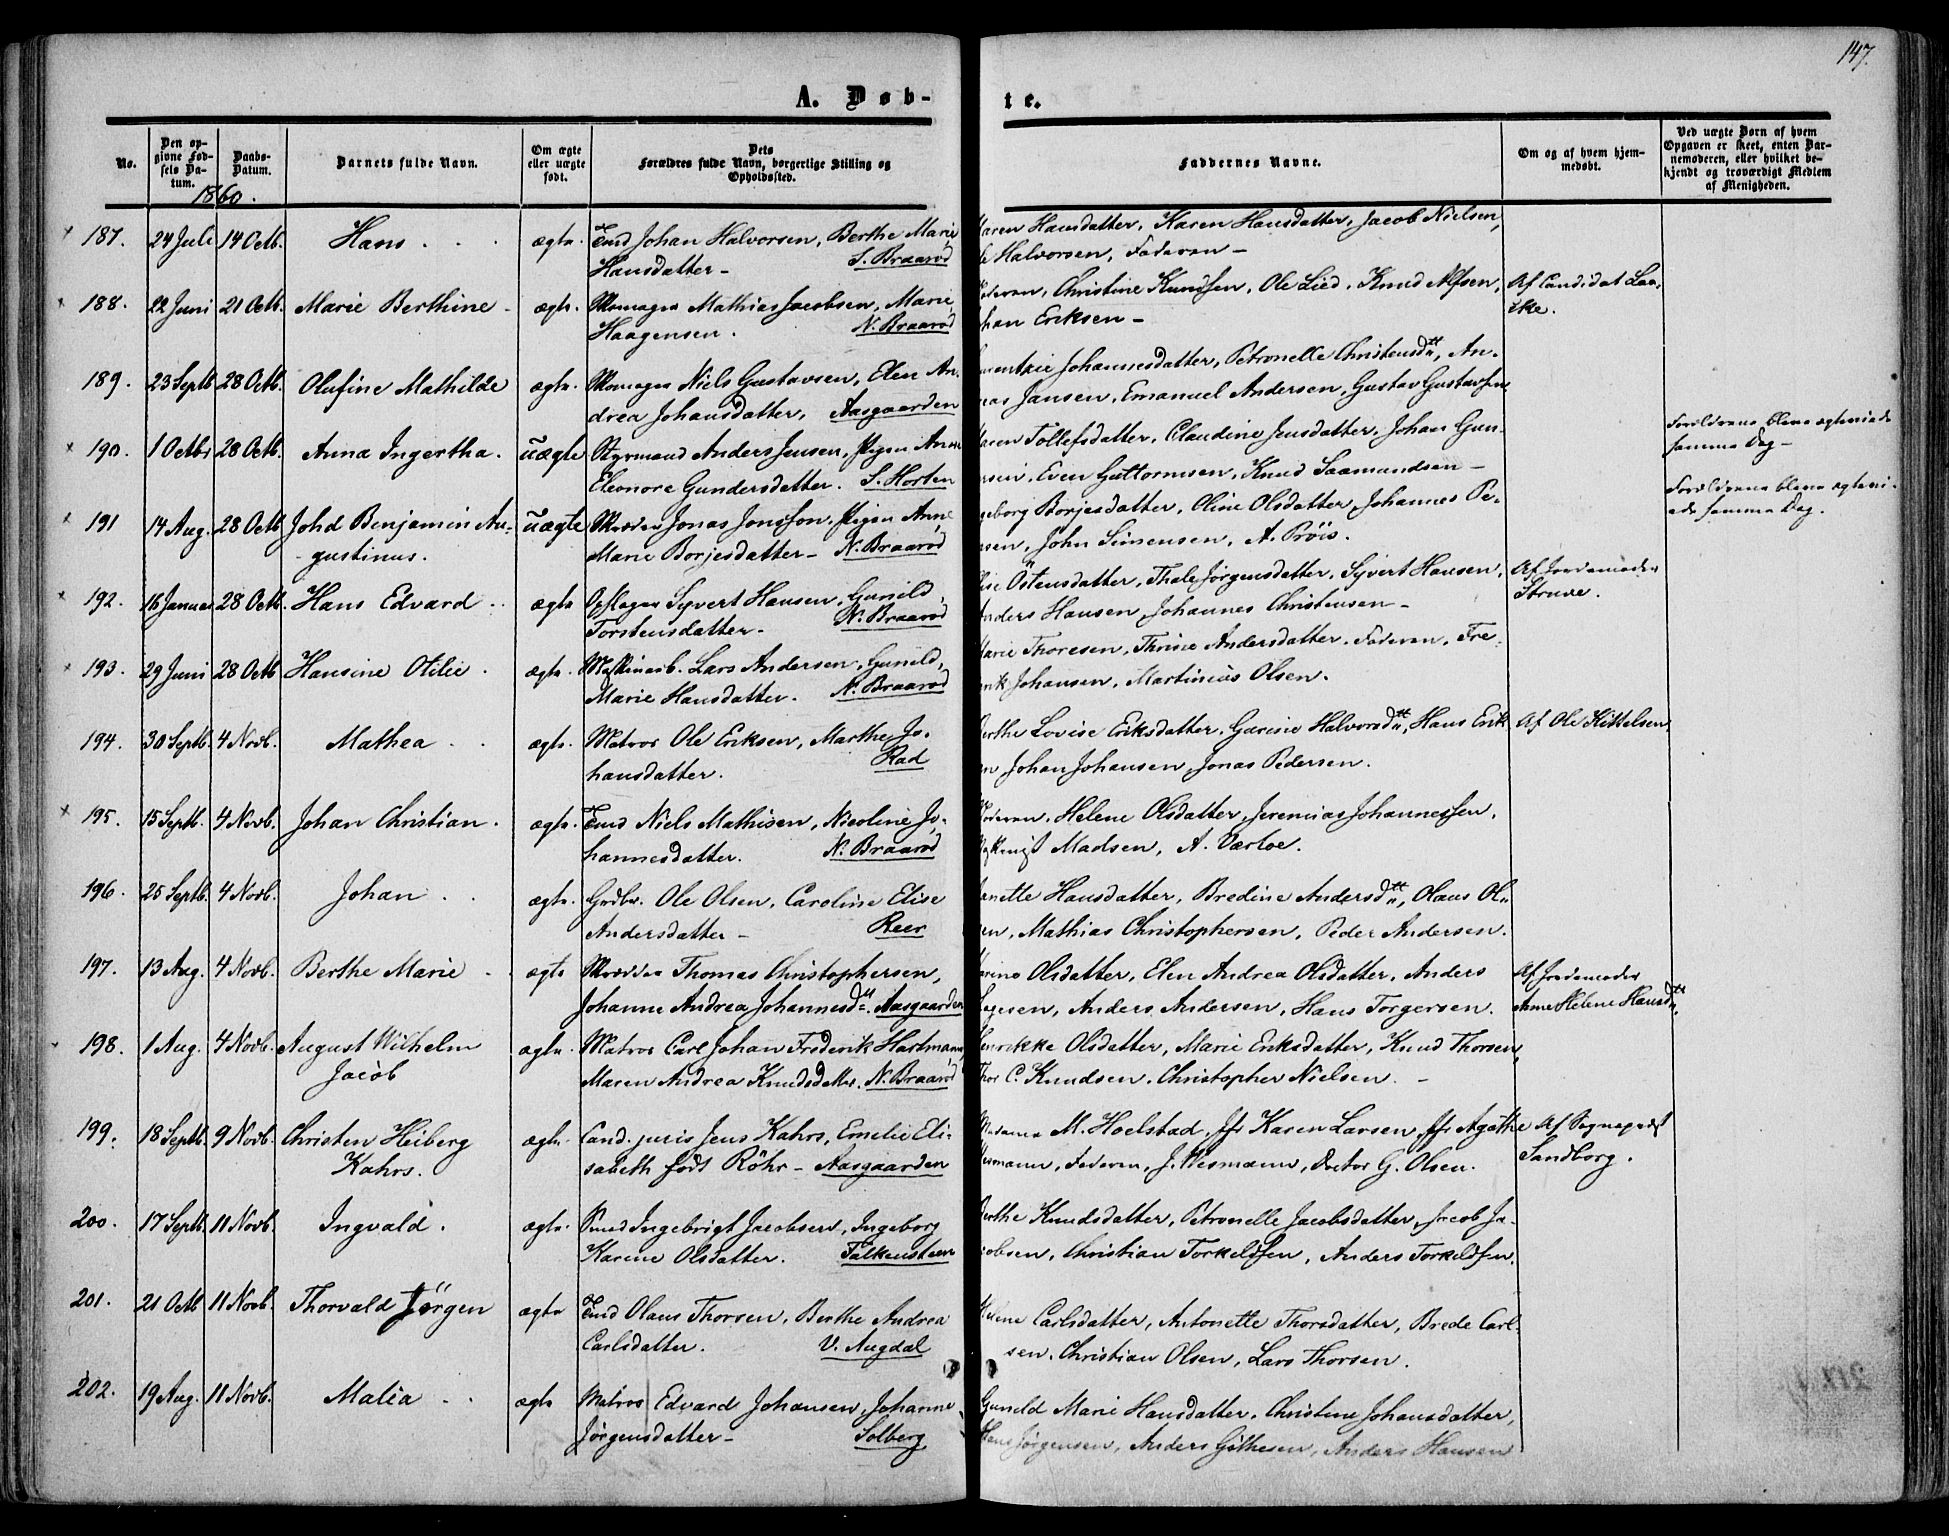 147.
A. Døb-
te.
No.
Den op-
givne Fød-
sels Da-
tum.
Daabs-
Datum.
Barnets fulde Navn.
Om ægte
eller uægte
født.
Dets
Forældres fulde Navn, borgerlige Stilling og
Opholdssted.
Faddernes Navne.
Om og af hvem hjem-
medøbt.
Ved uægte Børn af hvem
Opgaven er skeet, enten Bar-
nemoderen, eller hvilket be-
kjendt og troværdigt Medlem
af Menigheden.
1860.
187. 24 Juli 14 Octb. Hans ægte. Johan Halvorsen, Berthe Marie
Hansdatter - S. Braarød
Maren Hansdatter, Karen Hansdatter, Jacob Nielsen,
Halvorsen, Faderen -
188. 22 Juni 21 Octb. Marie Berthine ægte. Skomager Mathias Jacobsen, Marie
Haagensen. N. Braarød
Christine Knudsen, Ole Lied, Knud Alfsen,
Johan Eriksen -
Af Candidat Laa-
ke.
189. 23 Septb 28 Octb. Olufine Mathilde ægte. Skomager Niels Gustavsen, Elen An-
drea Johansdatter, Aasgaarden
Johannesdatter, Petronelle Christensdtt, An-
Jansen, Emanuel Andersen, Gustav Gustavsen
190. 1 Octbr 28 Octb. Anna Ingertha. uægte Styrmand Anders Jensen, Pigen Anne
Eleonore Gundersdatter. S. Horten
Maren Tollefsdatter, Claudine Jensdatter, Johan Gun-
Even Guttormsen, Knud Saamundsen -
Forældrene bleve ægteviede
samme Dag -
191 14 Aug. 28 Octb. Johd Benjamin Au-
gustinus. uægte Skrædder Jonas Jonsson, Pigen Anne
Marie Borjesdatter - N. Braarød
Ingeborg Borjesdatter, Oline Olsdatter, Johannes Pe-
John Simensen, A. Prøis.
Forældrene bleve ægtevi-
ede samme Dag.
192. 16 Januar 28 Octb. Hans Edvard ægte Opslager Syvert Hansen, Gunild
Torstensdatter - N. Braarød
Østensdatter, Thale Jørgensdatter, Syvert Hansen,
Anders Hansen, Johannes Christensen -
Af Jordemoder
Struve.
193. 29 Juni 28 Octb Hansine Otilie ægte. Maskinarb. Lars Andersen, Gunild
Marie Hansdatter. N. Braarød
Marie Thoresen, Thrine Andersdatter, Faderen, Fre-
Johansen, Martinius Olsen.
194. 30 Septb. 4 Novb. Mathea ægte. Matros Ole Eriksen, Marthe Jo-
hansdatter. Rød
Berthe Lovise Eriksdatter, Gurine Halvorsdtt, Hans Erik
Johan Johansen, Jonas Pedersen.
Af Ole Kittelsen.
195. 15 Septb. 4 Novb. Johan Christian. ægte. Niels Mathisen, Nicoline Jo-
hannesdatter. N. Braarød
Faderen, Helene Olsdatter, Jeremias Johannessen,
Madsen, A. Værloe.
196. 25 Septb. 4 Novb. Johan ægte. Grdbr. Ole Olsen, Caroline Elise
Andersdatter - Reer
Hansdatter, Bredine Andersdtt, Olaus Ol-
Mathias Christophersen, Peder Andersen.
197. 13 Aug. 4 Novb. Berthe Marie ægte Skrædder Thomas Christophersen,
Johanne Andrea Johannesdtt. Aasgaarden
Olsdatter, Elen Andrea Olsdatter, Anders
Anders Andersen, Hans Torgersen.
Af Jordemoder
Anne Helene Hansdtt.
198. 1 Aug. 4 Novb. August Wilhelm
Jacob ægte. Matros Carl Johan Frederik Hartmann
Maren Andrea Knudsdatter. N. Braarød
Henrikke Olsdatter, Marie Eriksdatter, Knud Thorsen,
Thor C. Knudsen, Christopher Nielsen. -
199. 18 Septb. 9 Novb. Christen Heiberg
Kahrs. ægte. Cand. juris Jens Kahrs, Emelie Eli-
sabeth født Röhr - Aasgaarden
Madame M. Hoelstad, Jfr Karen Larsen, Jfr Agathe
Wesmann, Faderen, J. Wesmann, Doctor G. Olsen.
Af Sognepræst
Sandborg.
200. 17 Septb. 11 Novb. Ingvald. ægte. Smed Ingebrigt Jacobsen, Ingeborg
Karine Olsdatter. Falkensteen
Berthe Knudsdatter, Petronelle Jacobsdatter, Jacob Ja-
cobsen, Christian Torkeldsen, Anders Torkeldsen.
201. 21 Octb 11 Novb. Thorvald Jörgen ægte Olaus Thorsen, Berthe Andrea
Carlsdatter. V. Augdal
Helene Carlsdatter, Antonette Thorsdatter, Brede Carl-
sen, Christian Olsen, Lars Thorsen.
202. 19 Aug. 11 Novb. Malia ægte Matros Edvard Johansen, Johanne
Jørgensdatter - Solberg
Gunild Marie Hansdatter, Christine Johansdatter,
Hans Jørgensen, Anders Githesen, Anders Hansen